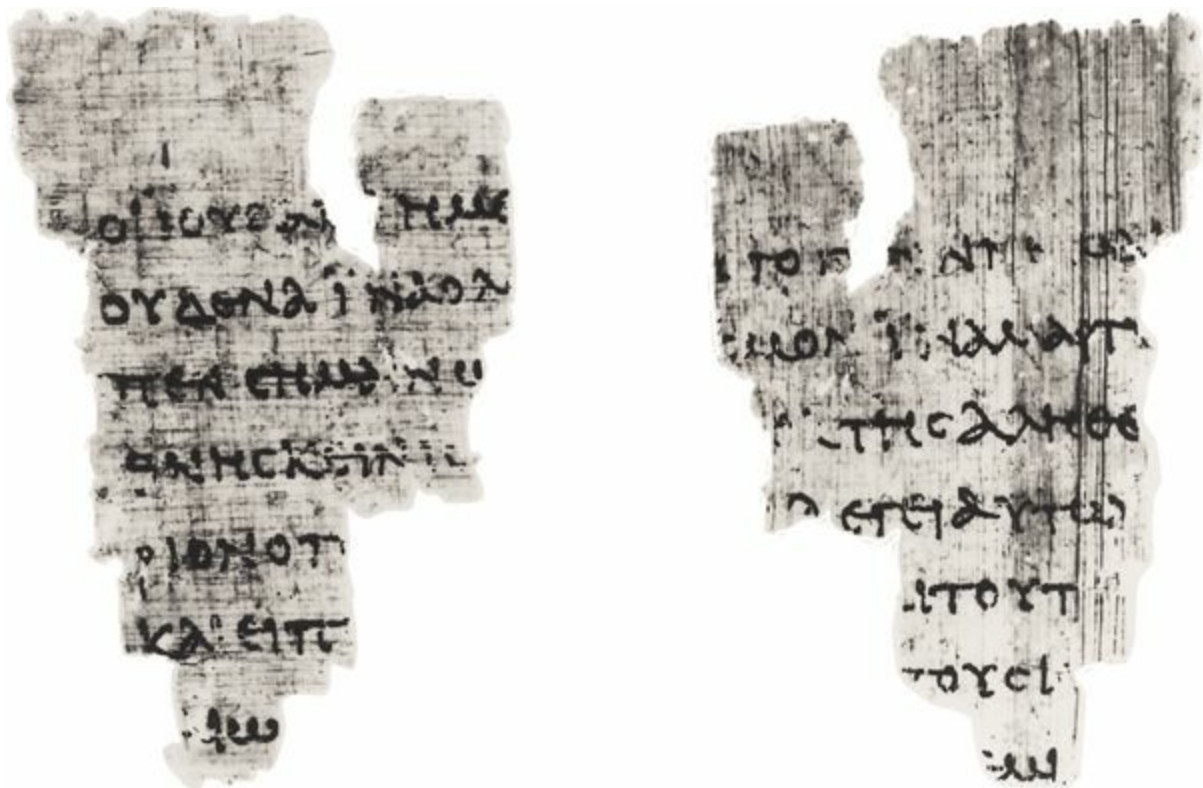 ΟΙ ΙΟΥΔΑΙ ΗΜΕ
ΟΥΔΕΝΑ ΪΝΑ Ο Λ
ΠΕΝ CΗΜΑΙΝΩ
ΘΝΗCΚΕΙΝ Ι
ΡΙΟΝ Ο Π
ΚΑΙ ΕΙΠ
ΑΙΩ
ΤΟ Γ ΕΝΝΗΜΑΙ
CΜΟΝ ΪΝΑ ΜΑΡΤΥ
Κ ΤΗC ΑΛΗΘΕ
ΛΕΓΕΙ ΑΥΤΩ
ΑΙ ΤΟΥΤ
ΤΟΥC Ι
ΜΙ